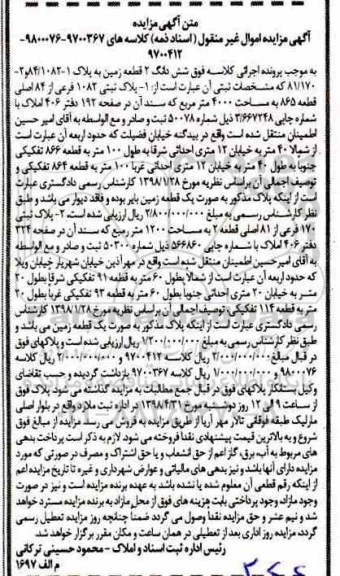 متن آگهی مزایده
آگهی مزایده اموال غیر منقول (اسناد ذمه) کلاسه های ۹۷۰۰۳۶۷-۹۸۰۰۰۷۶-
۹۷۰۰۴۱۲
به موجب پرونده اجرائی کلاسه فوق شش دانگ ۲ قطعه زمین به پلاک ۱-۸۴/۱۰۸۲و۲-
۸۱/۱۷۰ که مشخصات ثبتی آن عبارت است از: ۱- پلاک ثبتی ۱۰۸۲ فرعی از ۸۴ اصلی
قطعه ۸۶۵ به مساحت ۴۰۰۰ متر مربع که سند آن در صفحه ۱۹۲ دفتر ۴۰۶ املاک با
شماره چاپی ۳/۶۶۷۲۴۸ ذیل شماره ۵۰۰۷۸ ثبت و صادر و مع الواسطه به آقای امیر حسین
اطمینان منتقل شده است واقع در بیدگنه خیابان فضیلت که حدود اربعه آن عبارت است
از شمالا ۴۰ متر به خیابان ۱۲ متری احداثی شرقا به طول ۱۰۰ متر به قطعه ۸۶۶ تفکیکی
جنوبا به طول ۴۰ متر به خیابان ۱۲ متری احداثی غربا ۱۰۰ متر به قطعه ۸۶۴ تفکیکی و
توصیف اجمالی آن براساس نظریه مورخ ۱۳۹۸/۱/۲۸ کارشناس رسمی دادگستری عبارت
است از اینکه پلاک مذکور به صورت یک قطعه زمین بایر بوده و فاقد دیوار می باشد و طبق
نظر کارشناس رسمی به مبلغ ۲/۸۰۰/۰۰۰/۰۰۰ ریال ارزیابی شده است ۲- پلاک ثبتی
۱۷۰ فرعی از ۸۱ اصلی قطعه ۲ به مساحت ۱۲۰۰ متر مربع که سند آن در صفحه ۳۲۴
دفتر ۴۰۶ املاک با شماره چاپی ۵۶۶۸۶۰ ذیل شماره ۵۰۳۰۰ ثبت و صادر و مع الواسطه
به آقای امیرحسین اطمینان منتقل شده است واقع در مهرآذین خیابان شهریار خیابان ویلا
که حدود اربعه آن عبارت است از شمالا بطول ۶۰ متر به قطعه ۹۱ تفکیکی شرقا بطول ۲۰
متر به خیابان ۲۰ متری احداثی جنوبا بطول ۶۰ متر به قطعه ۹۳ تفکیکی غربا بطول ۲۰
متر به قطعه ۱۱۴ تفکیکی، توصیف اجمالی آن براساس نظریه مورخ ۱۳۹۸/۱/۲۸ کارشناس
رسمی دادگستری عبارت است از اینکه پلاک مذکور به صورت یک قطعه زمین می باشد و
طبق نظر کارشناس رسمی به مبلغ ۱/۲۰۰/۰۰۰/۰۰۰ ریال ارزیابی شده است و پلاکهای فوق
در قبال مبالغ ۲/۰۰۰/۰۰۰/۰۰۰ ریال کلاسه ۹۷۰۰۴۱۲ و ۲/۰۰۰/۰۰۰/۰۰۰ ریال کلاسه
۹۸۰۰۰۷۶ و ۱/۰۰۰/۰۰۰/۰۰۰ ریال کلاسه ۹۷۰۰۳۶۷ بازداشت گردیده و حسب تقاضای
وکیل بستانکار پلاکهای فوق در قبال جمع مطالبات به مزایده گذاشته می شود. پلاک فوق
از ساعت ۹ الی ۱۲ روز دوشنبه مورخ ۱۳۹۸/۴/۳۱ در اداره ثبت ملارد واقع در بلوار اصلی
مارلیک طبقه فوقانی تالار مهر آریا از طریق مزایده به فروش می رسد. مزایده از مبالغ فوق
شروع و به بالاترین قیمت پیشنهادی نقدا فروخته می شود. لازم به ذکر است پرداخت بدهی
های مربوط به آب، برق، گاز اعم از حق انشعاب و یا حق اشتراک و مصرف در صورتی که مورد
مزایده دارای آنها باشد و نیز بدهی های مالیاتی و عوارض شهرداری و غیره تا تاریخ مزایده اعم
از اینکه رقم قطعی آن معلوم شده یا نشده باشد به عهده برنده مزایده است و نیز در صورت
وجود مازاد، وجوه پرداختی بابت هزینه های فوق از محل مازاد به برنده مزایده مسترد خواهد
شد و نیم عشر و حق مزایده نقدا وصول می گردد ضمنا چنانچه روز مزایده تعطیل رسمی
گردد، مزایده روز اداری بعد از تعطیلی در همان ساعت و مکان مقرر برگزار خواهد شد.
رئیس اداره ثبت اسناد و املاک - محمود حسینی ترکانی
م الف ۱۶۹۷